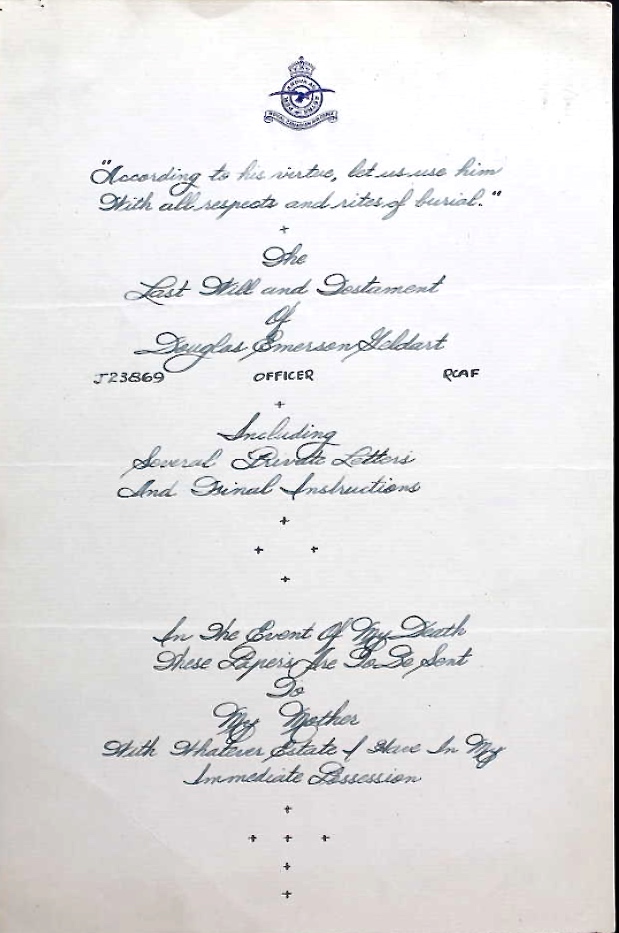 PER ARDUA AD ASTRA
ROYAL CANADIAN AIR FORCE
"According to his virtue, let us use him
With all respects and rites of burial."
+
The
Last Will and Testament
Of
Douglas Emerson Geldart
J23869 OFFICER RCAF
+
Including
Several Private Letters
And Final Instructions
+
+ +
+
In The Event Of My Death
These Papers Are To Be Sent
To
My Mother
With Whatever Estate I Have In My
Immediate Possession
+
+ + +
+
+